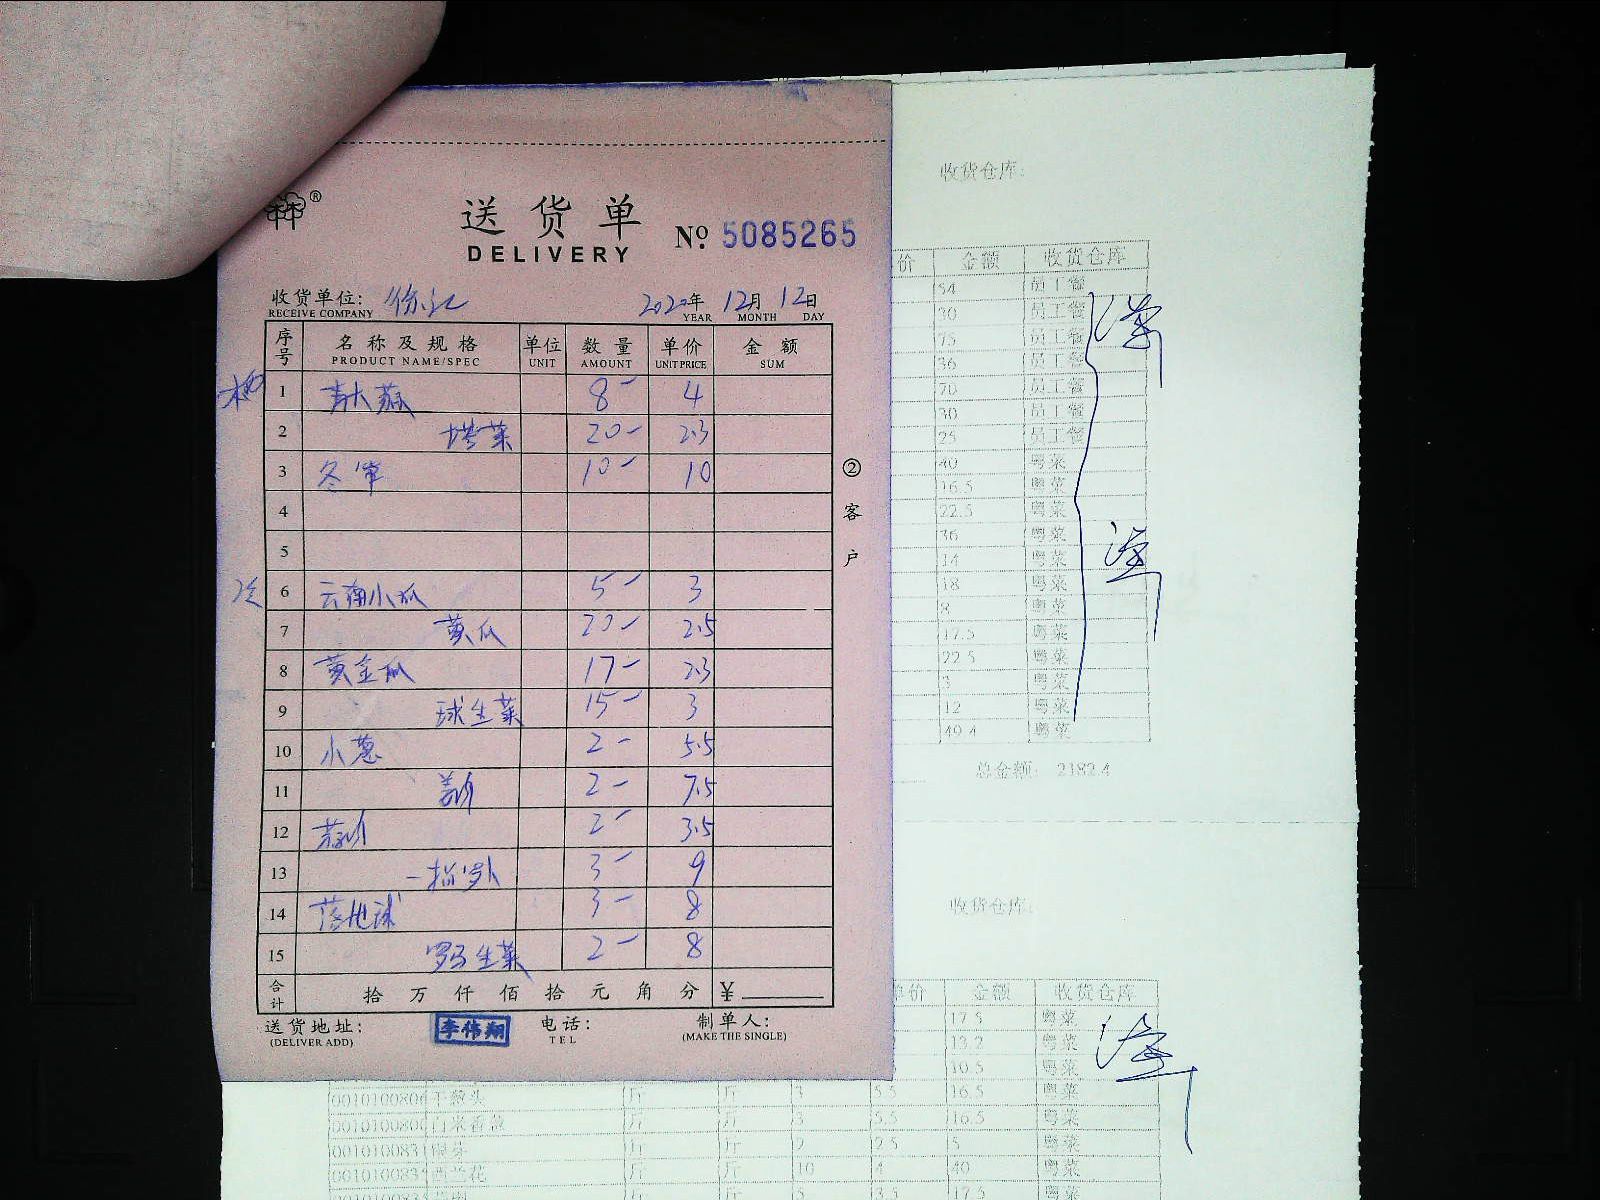 ®
送货单
DELIVERY
№ 5085265
收货单位:
RECEIVE COMPANY
2020年 12月 12日
YEAR MONTH DAY
序号 名称及规格 单位 数量 单价 金额
PRODUCT NAME/SPEC UNIT AMOUNT UNIT PRICE SUM
1 青大 8- 4
2 塔菜 20- 2.3
3 冬笋 10- 10
4
5
6 云南小瓜 5- 3
7 黄瓜 20- 2.5
8 黄金瓜 17- 2.3
9 球生菜 15- 3
10 小葱 2- 5.5
11 2- 7.5
12 2- 3.5
13 3- 9
14 落地球 3- 8
15 罗马生菜 2- 8
合计 拾 万 仟 佰 拾 元 角 分 ¥
送货地址: 李伟翔 电话: 制单人:
(DELIVER ADD) TEL (MAKE THE SINGLE)
② 客户
收货仓库:
价 金额 收货仓库
54 员工餐
30 员工餐
75 员工餐
36 员工餐
70 员工餐
30 员工餐
25 员工餐
40 粤菜
16.5 粤菜
22.5 粤菜
36 粤菜
14 粤菜
18 粤菜
8 粤菜
17.5 粤菜
22.5 粤菜
3 粤菜
12 粤菜
49.4 粤菜
总金额: 2182.4
收货仓库:
单价 金额 收货仓库
17.5 粤菜
13.2 粤菜
10.5 粤菜
干葱头 斤 斤 3 5.5 16.5 粤菜
斤 斤 3 5.5 16.5 粤菜
银芽 斤 斤 2 2.5 5 粤菜
西兰花 斤 斤 10 4 40 粤菜
斤 斤 5 3.5 17.5 粤菜